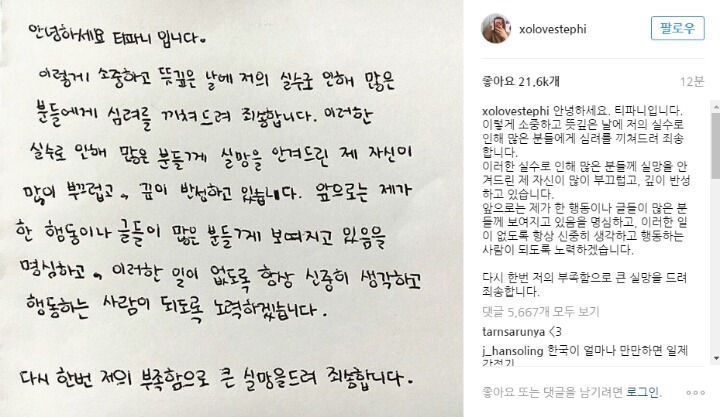 안녕하세요 티파니 입니다.
이렇게 소중하고 뜻깊은 날에 저의 실수로 인해 많은
분들에게 심려를 끼쳐드려 죄송합니다. 이러한
실수로 인해 많은 분들께 실망을 안겨드린 제 자신이
많이 부끄럽고, 깊이 반성하고 있습니다. 앞으로는 제가
한 행동이나 글들이 많은 분들께 보여지고 있음을
명심하고, 이러한 일이 없도록 항상 신중히 생각하고
행동하는 사람이 되도록 노력하겠습니다.
다시 한번 저의 부족함으로 큰 실망을드려 죄송합니다.
xolovestephi
팔로우
좋아요 21.6k개
12분
xolovestephi 안녕하세요. 티파니입니다.
이렇게 소중하고 뜻깊은 날에 저의 실수로
인해 많은 분들에게 심려를 끼쳐드려 죄송
합니다.
이러한 실수로 인해 많은 분들께 실망을 안
겨드린 제 자신이 많이 부끄럽고, 깊이 반성
하고 있습니다.
앞으로는 제가 한 행동이나 글들이 많은 분
들께 보여지고 있음을 명심하고, 이러한 일
이 없도록 항상 신중히 생각하고 행동하는
사람이 되도록 노력하겠습니다.
다시 한번 저의 부족함으로 큰 실망을 드려
죄송합니다.
댓글 5,667개 모두 보기
tarnsarunya <3
j_hansoling 한국이 얼마나 만만하면 일제
좋아요 또는 댓글을 남기려면 로그인.